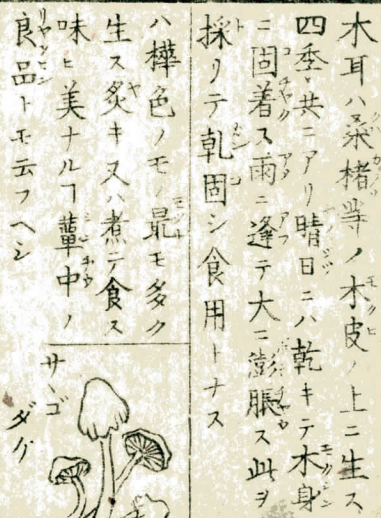 木耳ハ桑楮等ノ木皮ノ上ニ生ス
四季共ニアリ晴日ニハ乾キテ木身
ニ固着ス雨ニ逢テ大ニ膨脹ス此ヲ
採リテ乾固シ食用トナス
ハ樺色ノモノ最モ多ク
生ス炙キ又ハ煮テ食ス
味ヒ美ナルヿ蕈中ノ
良品トモ云フヘシ
サヽゴ
ダケ